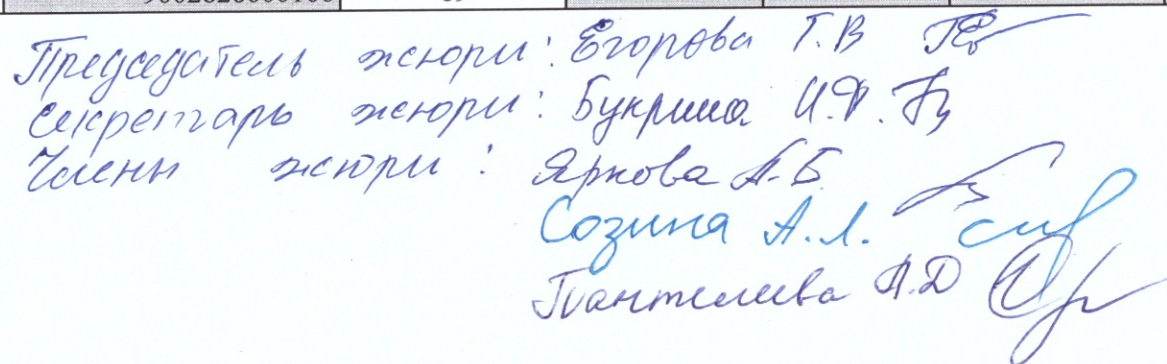 Председатель жюри: Егорова Т.В
Секретарь жюри: Букрина И.Ф.
Члены жюри: Яркова А.Б.
Созина А.Л.
Пантелеева А.Д